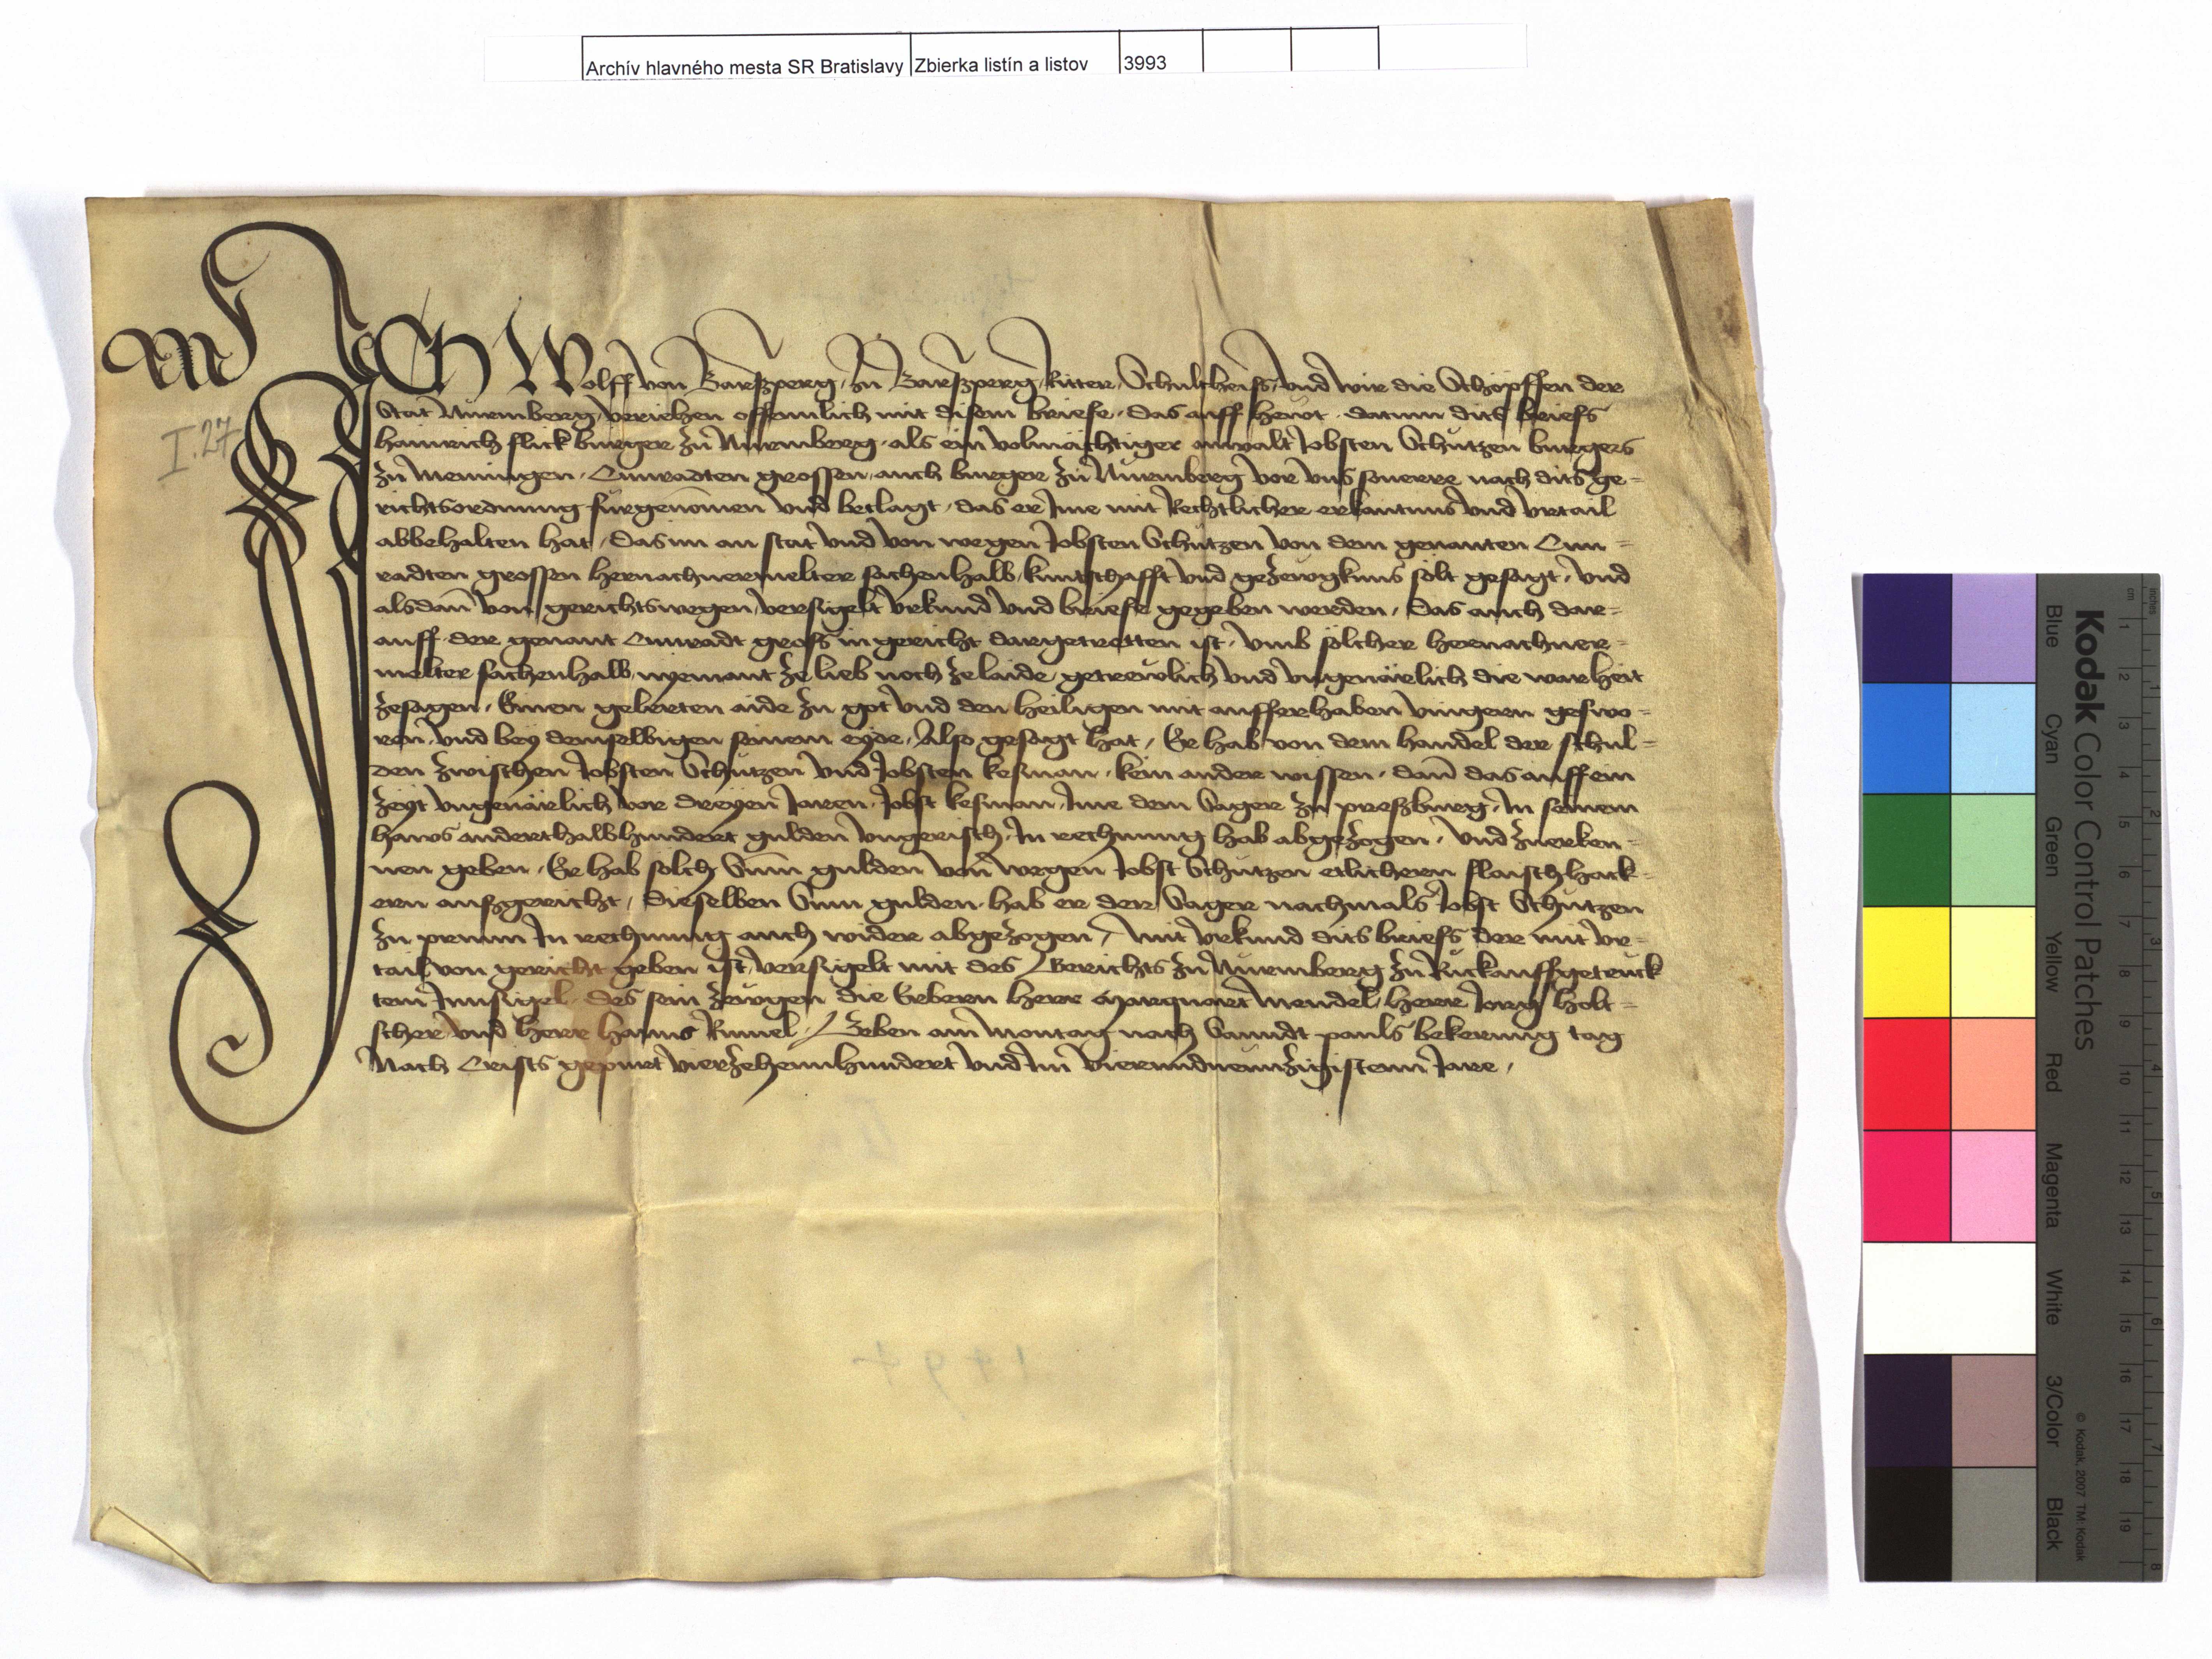 Archív hlavného mesta SR Bratislavy Zbierka listín a listov 3993
ICH Wolff von Parsperg zu Parsperg Ritter Schultheiss und wir die Schöpffen der
Stat Nüremberg veriehen offennlich mit disem briefe das auff hewt datum dits briefs
hainrich flick burger zu Nüremberg als ein volmächtiger anwalt Jobsten Schützen burgers
zu Memingen Cunradten grossen auch burger zu Nüremberg vor uns souerre nach dits ge=
richtsordnung fürgenomen und beclagt das er Ine mit Rechtlicher erkantnus und urtail
abbehalten hat das im an stat und von wegen Jobsten Schützen von dem genanten Cun=
radten grossen hernachuermelter sachenhalb kuntschafft und gezewgknus solt gesagt und
alsdann von gerichtswegen versigelt urkund und briefe gegeben werden Das auch dar=
auff der genant Cunradt gross in gericht dargetretten ist umb sölcher hernachuer=
melter sachenhalb nyemant ze lieb noch ze laide getrewlich und ungeuärlich die warheit
zesagen Einen gelerten aide zu got und den heiligen mit aufferhaben vingern geswo=
ren und bey demselbigen seinem eyde Also gesagt hat Er hab von dem handel der schul=
den zwischen Jobsten Schützen und Jobsten kesman kein ander wissen dann das auff ein
zeyt ungeuärlich vor dreyen Jaren Jobst kesman Ime dem Sager zu preßburg In seinem
haws anderthalbhundert gulden ungerisch In rechnung hab abgezogen und zuerken=
nen geben Er hab solch Sum gulden von wegen Jobst Schützen etlichenn flaischhack=
ern aufzgericht Dieselben Sum gulden hab er der Sager nachmals Jobst Schützen
zu prünn In rechnung auch wider abgezogen Mit urkund dits briefs der mit ur=
tail von gericht geben ist versigelt mit des Gerichts zu Nüremberg zu Ruckauffgetruck
tem Innsigel des sein zewgen die Erbern herr Marquart Mendel herr Jorg holt=
scher und herr hanns Rumel Geben am Montag nach Sanndt pauls bekerung tag
Nach Crists gepurt vierzehennhundert und Im vierundneunzigistenn Jare
I.27
1494
Kodak Color Control Patches
Blue Cyan Green Yellow Red Magenta White 3/Color Black
© Kodak, 2007 TM: Kodak
inches 1 2 3 4 5 6 7 8
cm 1 2 3 4 5 6 7 8 9 10 11 12 13 14 15 16 17 18 19